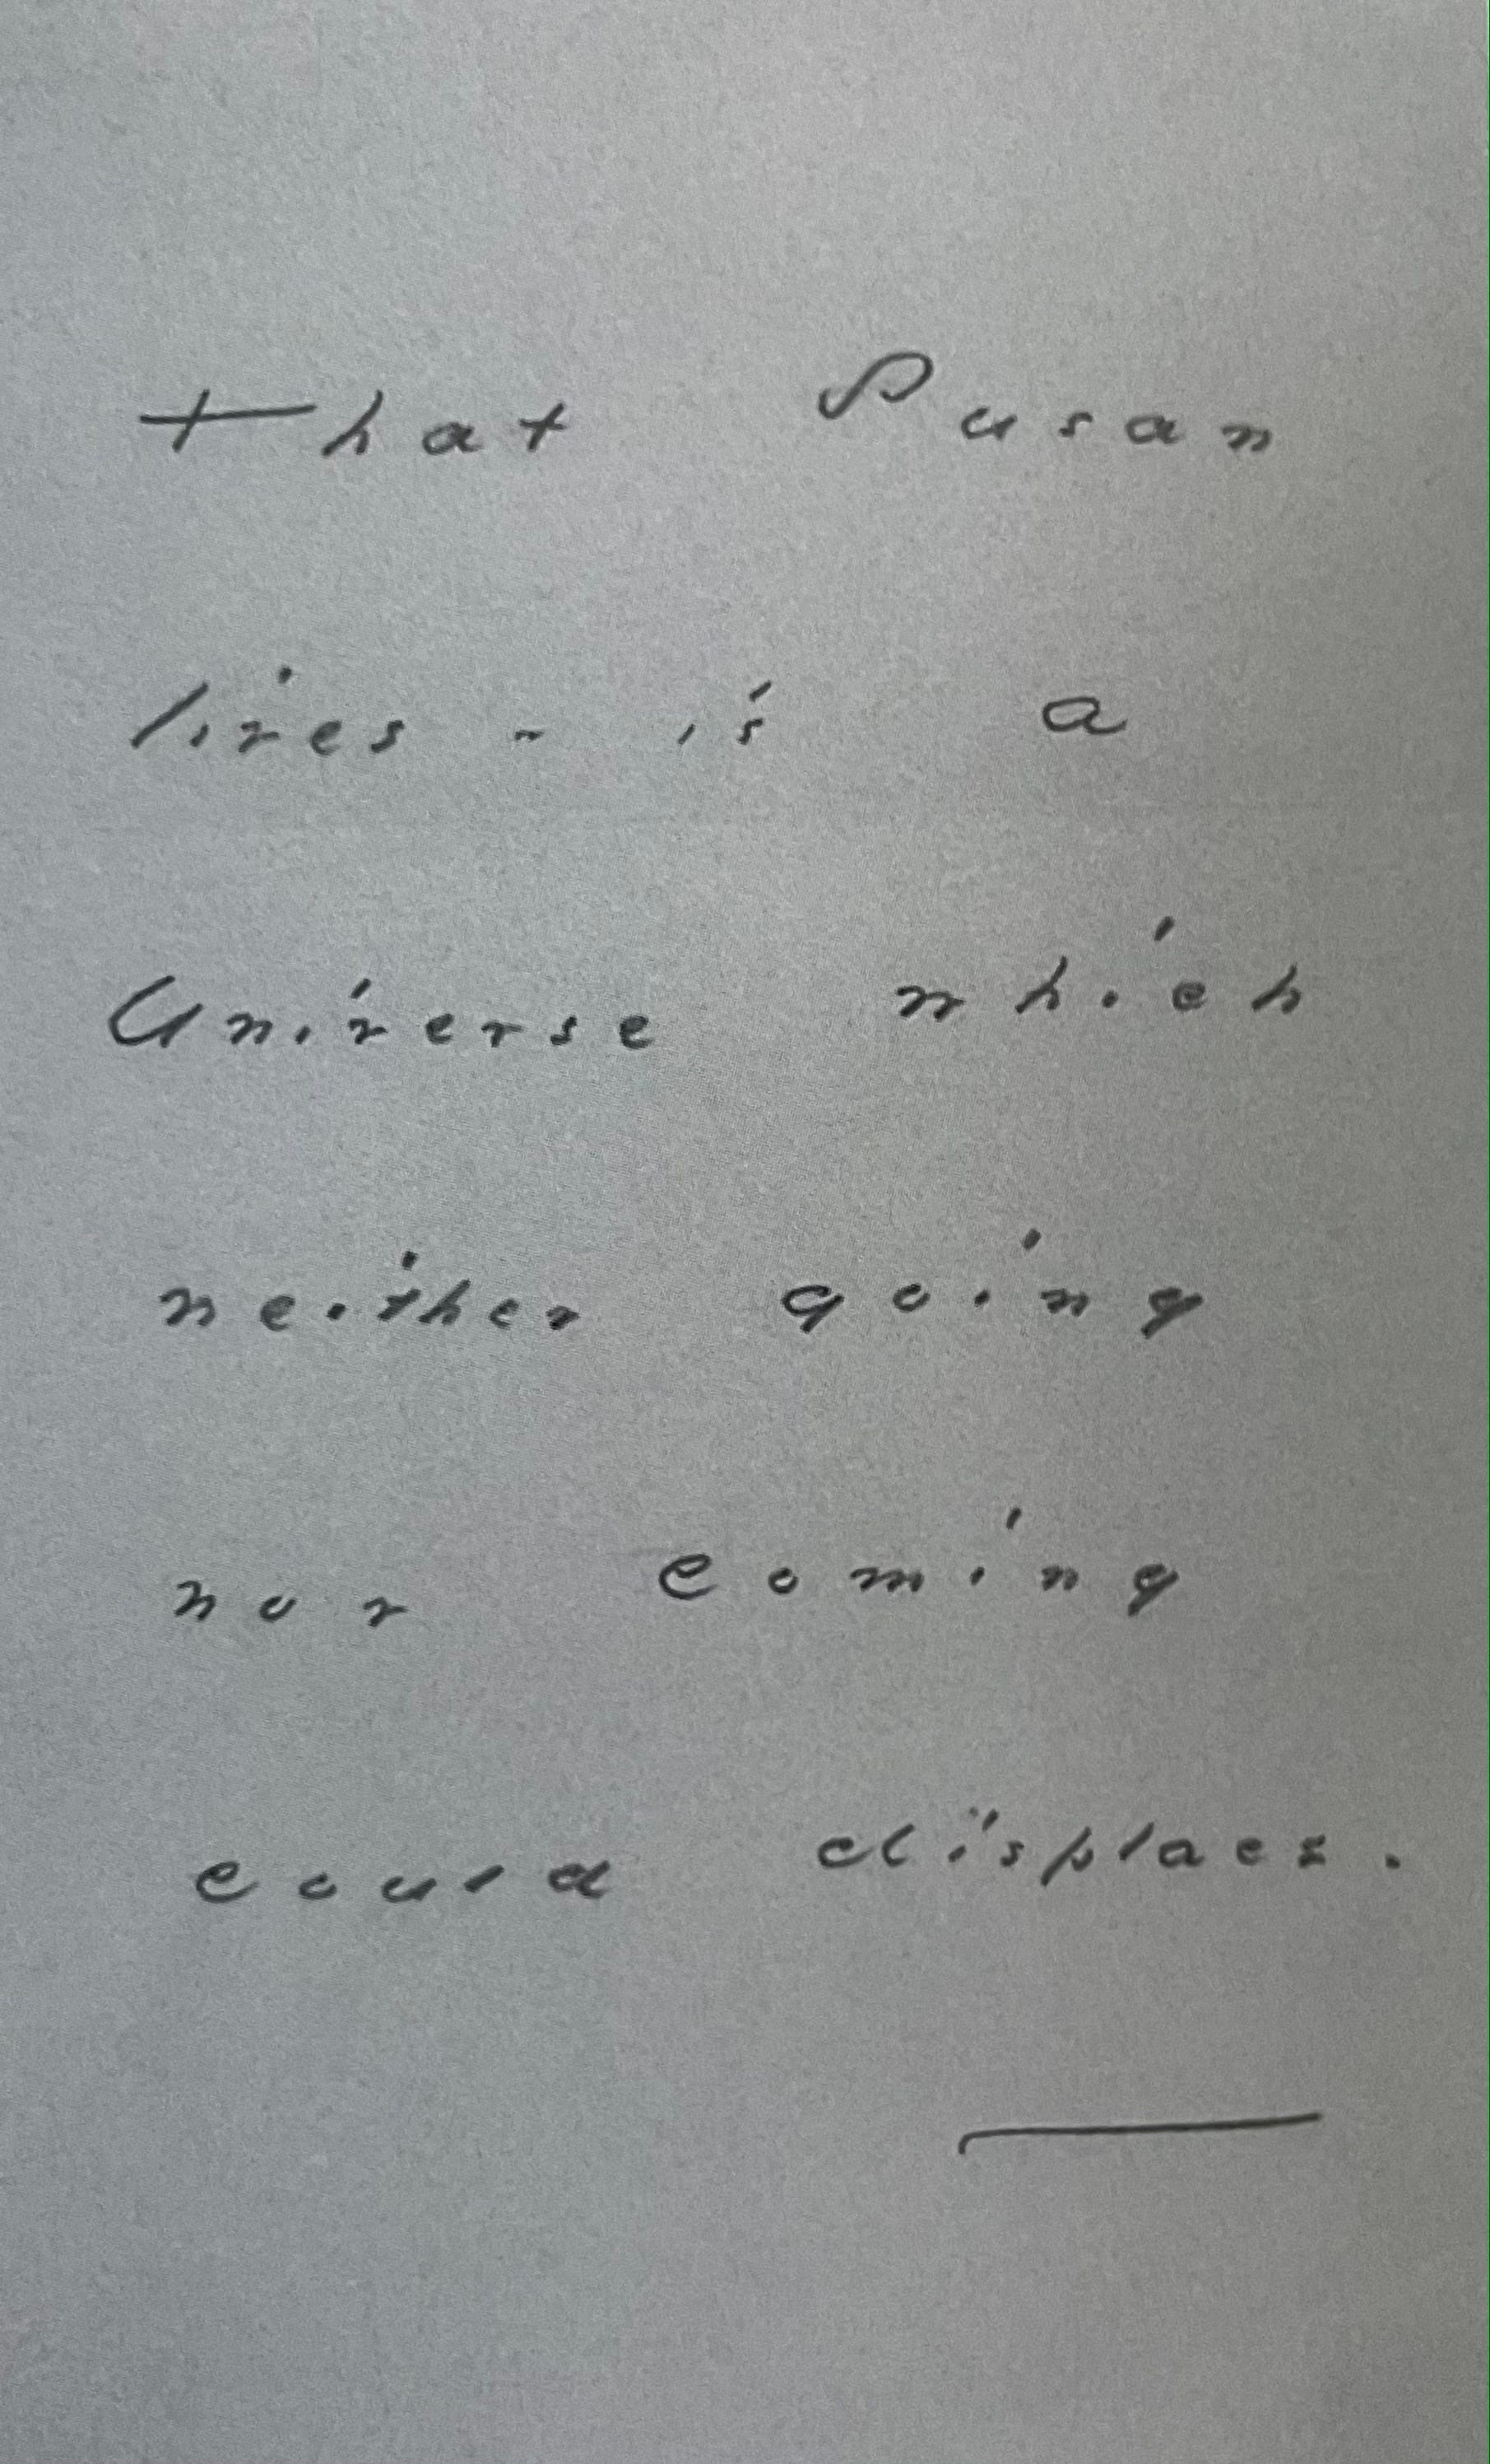 That Susan
lives - is a
Universe which
neither going
nor coming
could displace.